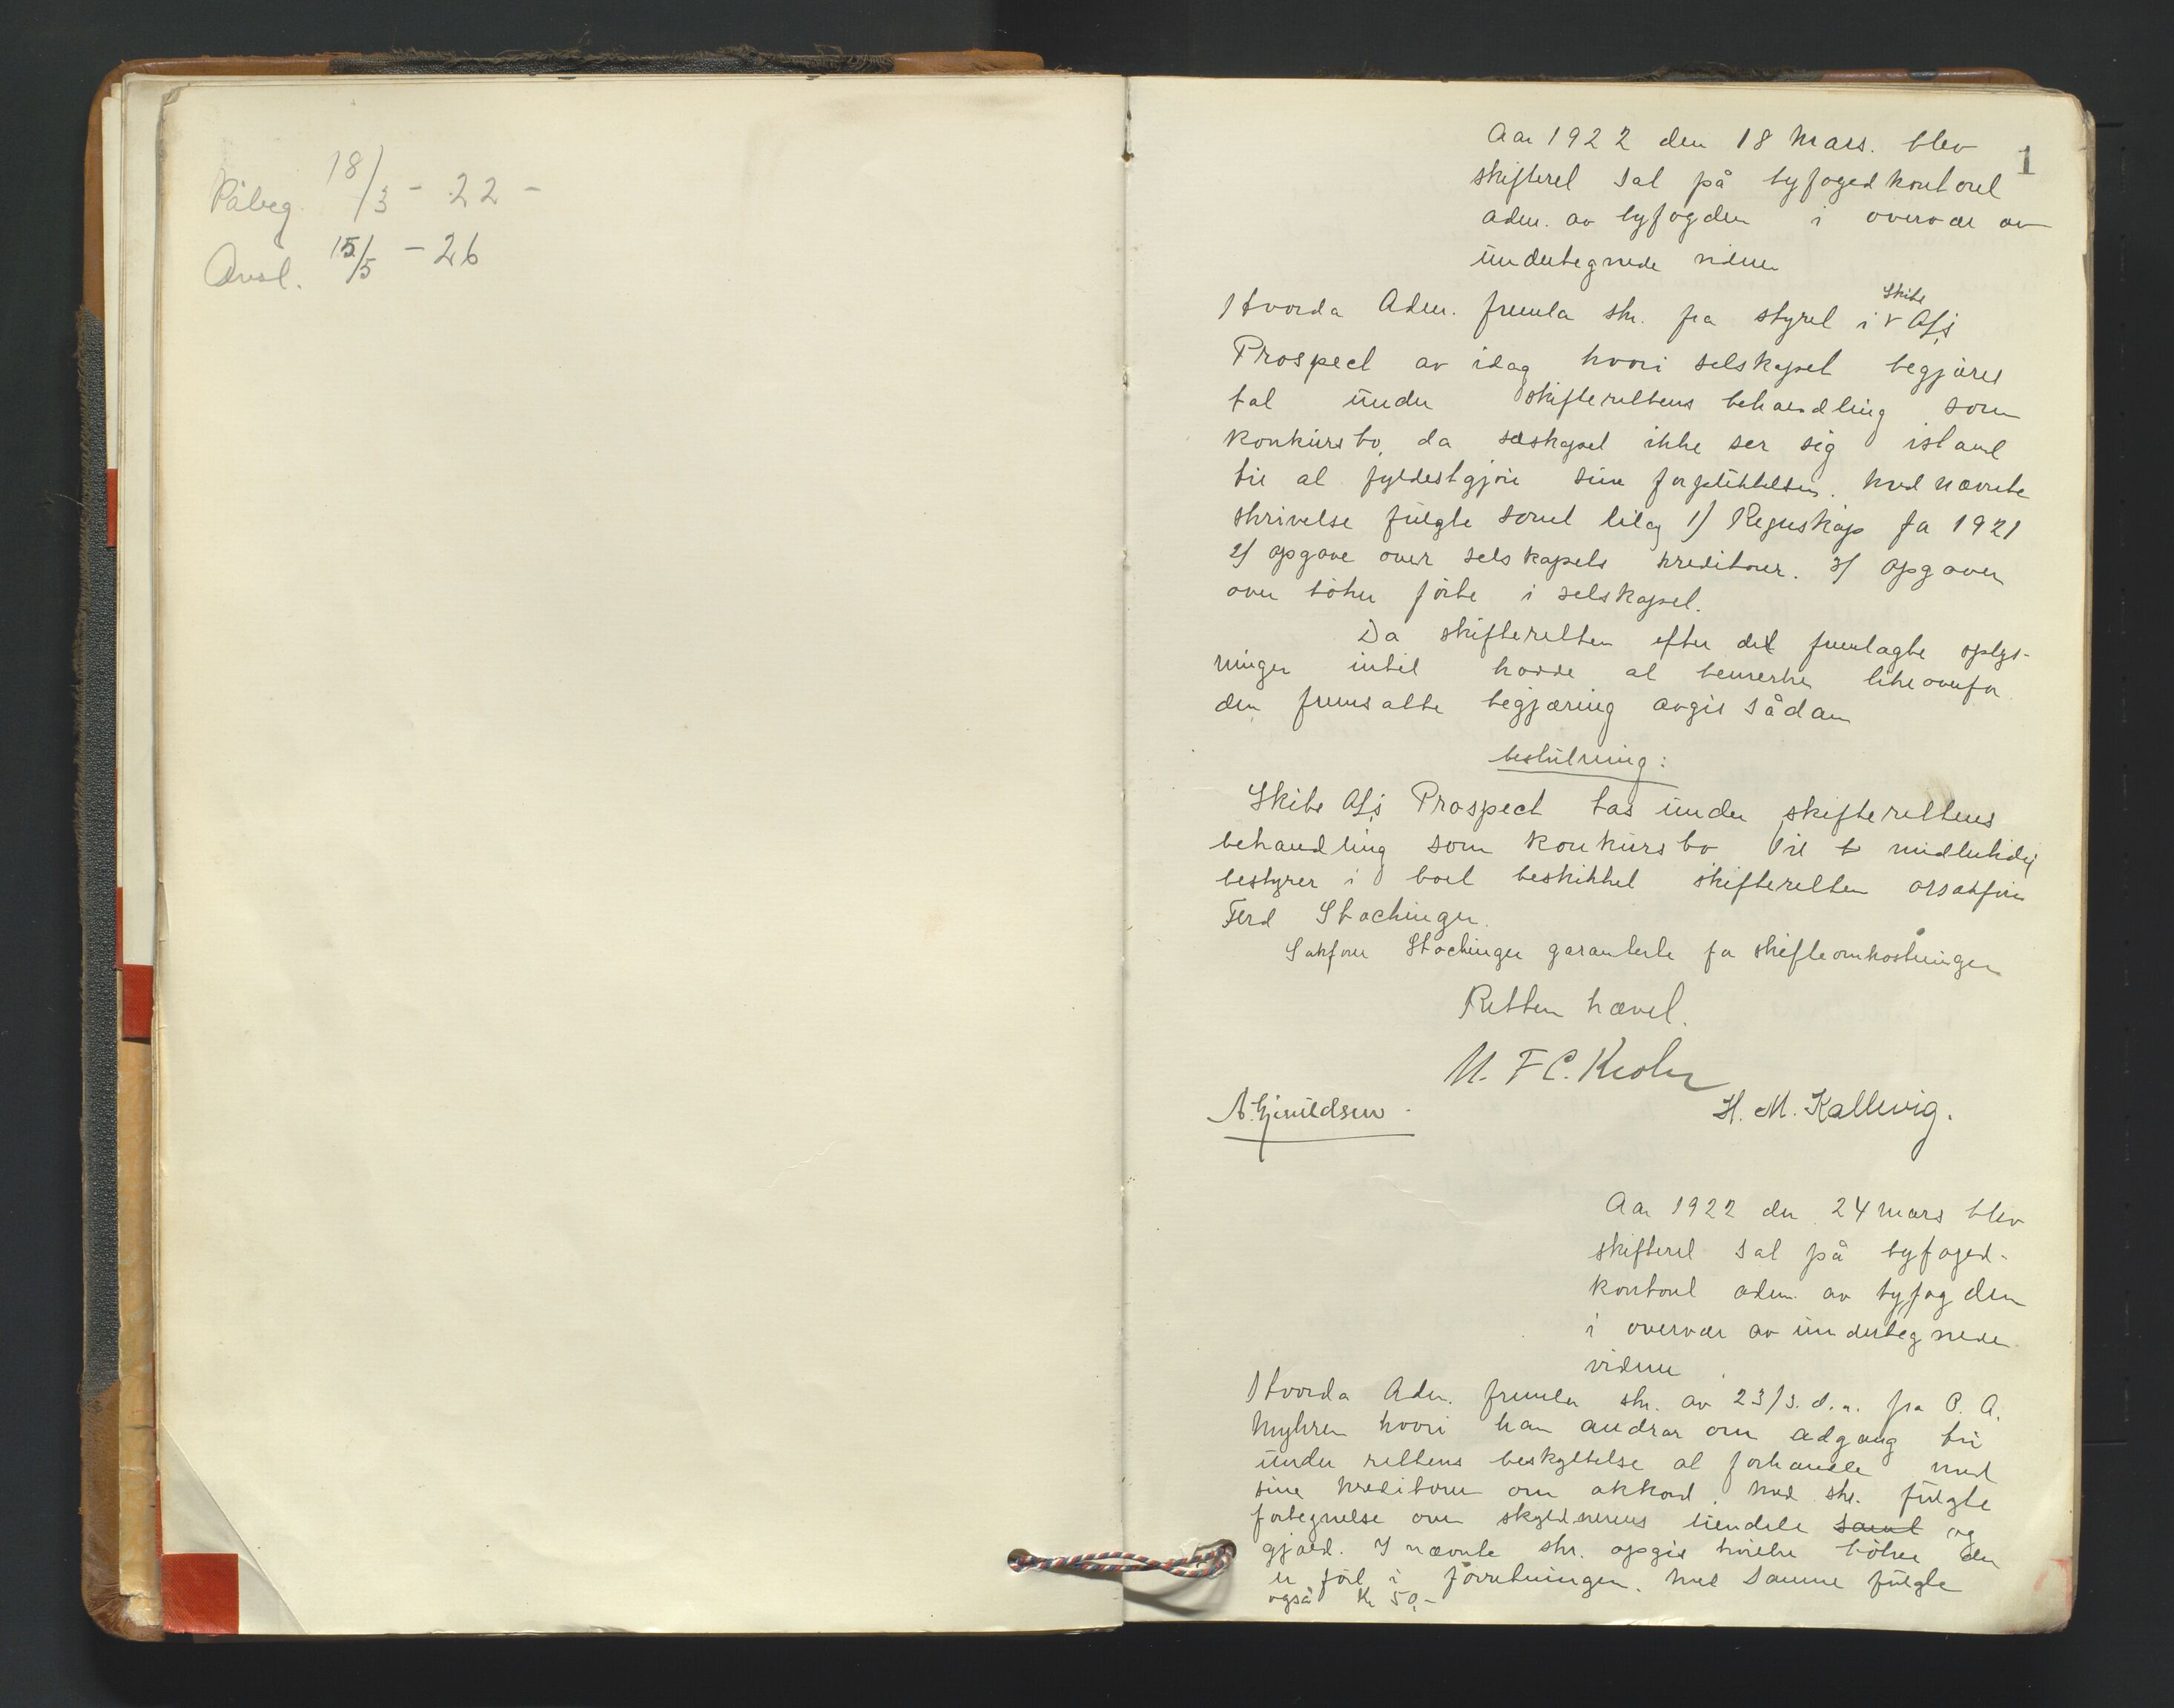 Påbeg. 18/3 - 22 -
Avsl. 15/5 - 26
1
Aar 1922 den 18 Mars. blev
skifteret sat på byfogedkontoret
adm. av byfogden i overvær av
undertegnede vidner
Hvorda Adm. fremla skr. fra styret i Skibs A/S
Prospect av idag hvori selskapet begjæres
tat under skifterettens behandling som
konkursbo, da selskapet ikke ser sig istand
til at fyldestgjøre sine forpliktelser. Med nævnte
skrivelse fulgte somt bilag 1) Regnskap for 1921
2) opgave over selskapets kreditorer. 3) opgaver
over bøker førte i selskapet.
Da skifteretten efter det fremlagte oplys-
ninger intet havde at bemerke likeoverfor
den fremsatte begjæring avgis sådan
beslutning:
Skibs A/S Prospect tas under skifterettens
behandling som konkursbo Til midlertidig
bestyrer i boet beskikket skifteretten orsakfører
Ferd Stachinger.
Sakfører Stachinger garanterte for skifteomkostningen
Retten hævet.
N. F C. Krohn
A. Gjerulldsen. H. M. Kallevig.
Aar 1922 den 24 mars blev
skifteret sat på byfoged-
kontoret adm. av byfogden
i overvær av undertegnede
vidner
Hvorda Adm. fremla skr. av 23/3. d.a. fra P. A.
Myhren hvori han andrar om adgang til
under rettens beskyttelse at forhandle med
sine kreditorer om akkord. Med skr. fulgte
fortegnelse over skyldnerens eiendele samt og
gjæld. I nævnte skr. opgis hvilke bøker der
er ført i forretningen. Med samme fulgte
også Kr 50,-